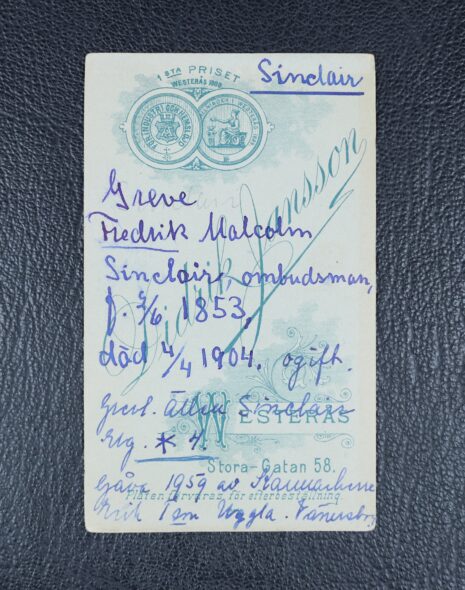 1 STA PRISET
Sinclair
WESTERÅS
FÖR INDUSTRI OCH HEMSLÖJD
Greve
Fredrik Malcolm
Jansson
Sinclair, ombudsman,
f. 5/6 1853,
död 4/4 1904. ogift.
Grevl. ätten Sinclair
WESTERÅS
Elg. * 4.
Stora-Gatan 58.
Gåva 1959 av
Plåten förvaras för efterbeställning
Erik Uggla. Vänersborg